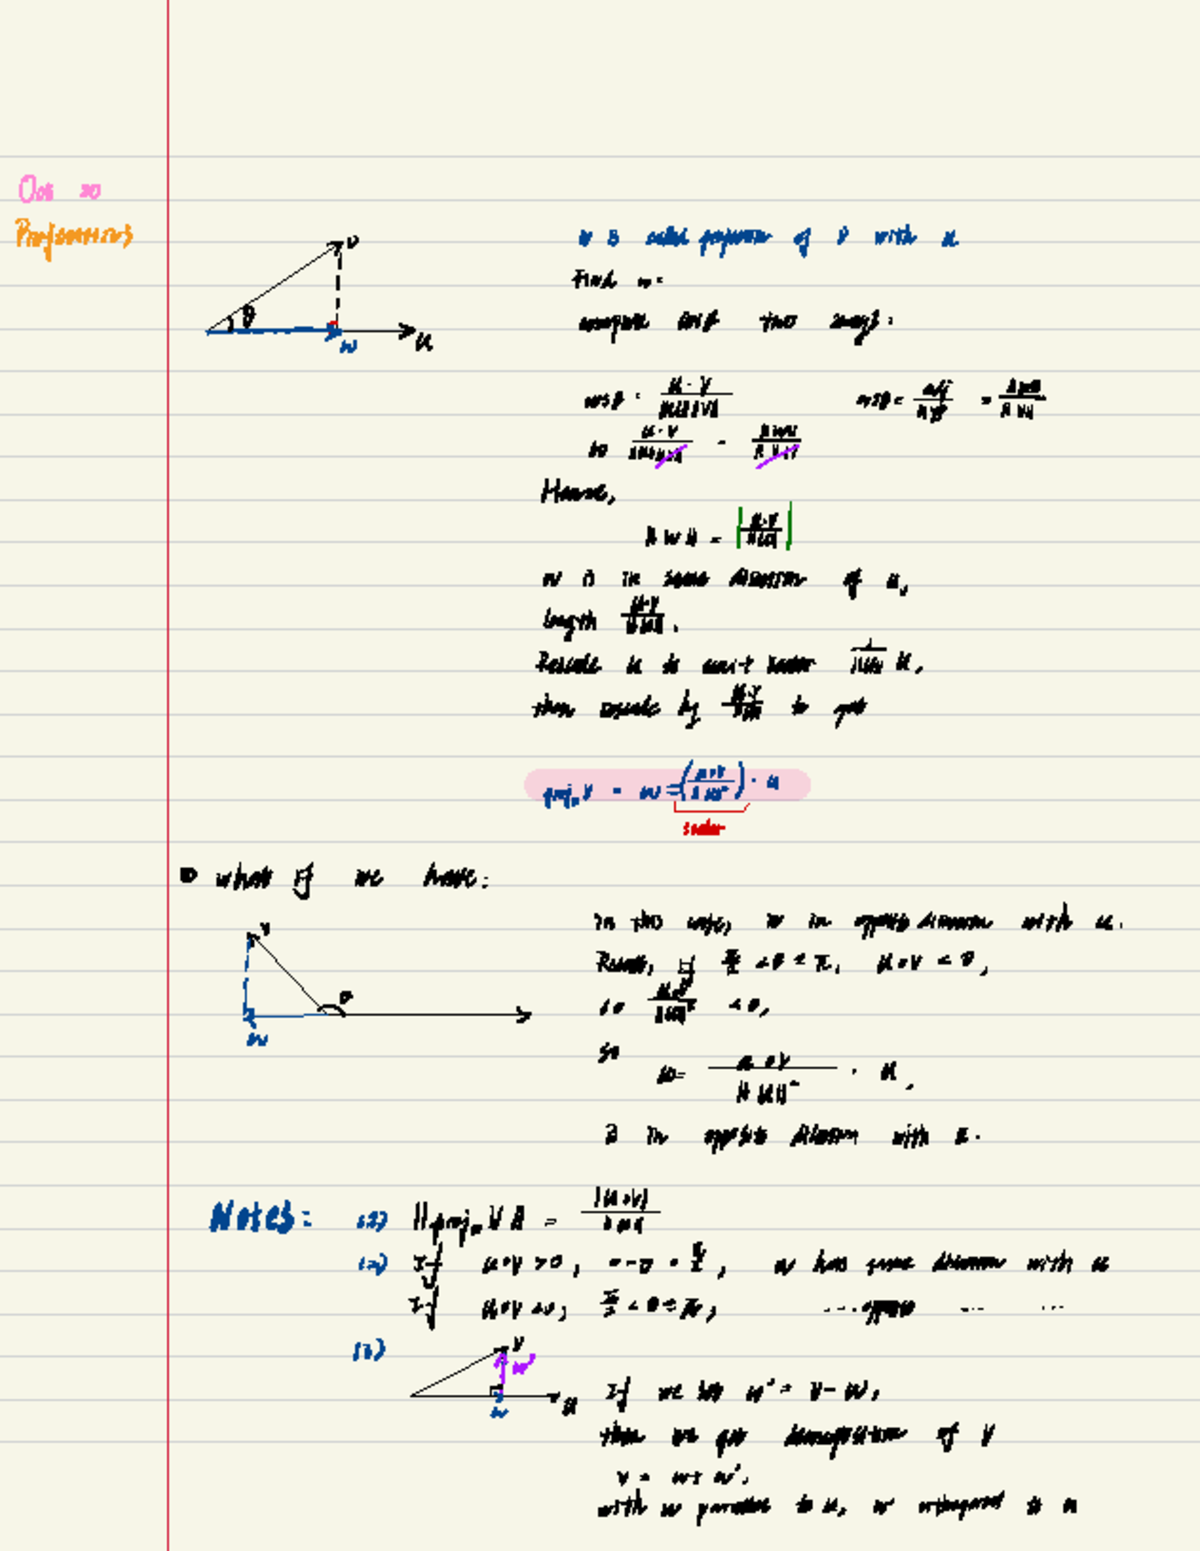 Oct 20
Projections
v
θ
w
u
w is called projection of v with u
Find w:
compute cosθ two ways:
cosθ = u·v / ||u|| ||v||   cosθ = adj / hyp = ||w|| / ||v||
so u·v / ||u|| ||v|| = ||w|| / ||v||
Hence,
||w|| = | u·v / ||u|| |
w is in same direction of u,
length u·v / ||u||.
Rescale u to unit vector 1 / ||u|| u,
then rescale by u·v / ||u|| to get
proj_u v = w = (u·v / ||u||²) · u
scalar
what if we have:
v
θ
w
In this case, w in opposite direction with u.
Recall, if π/2 < θ ≤ π, u·v < 0,
so u·v / ||u||² < 0,
so
w = u·v / ||u||² · u,
is in opposite direction with u.
Notes: (1) ||proj_u v|| = |u·v| / ||u||
(2) If u·v > 0, θ π/2, w has same direction with u
If u·v < 0, π/2 < θ ≤ π, ... opposite ... ...
(3)
v
w'
w
u
If we let w' = v - w,
then we get decomposition of v
v = w + w',
with w parallel to u, w' orthogonal to u